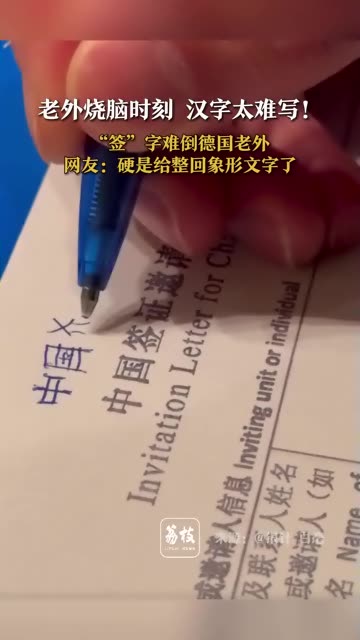 老外烧脑时刻 汉字太难写！
“签”字难倒德国老外
网友：硬是给整回象形文字了
中国
中国签证邀请
Invitation Letter for Ch
或邀请人信息 Inviting unit or individual
及联系人姓名
或邀请人（如
名 Name of
荔枝
来源：@